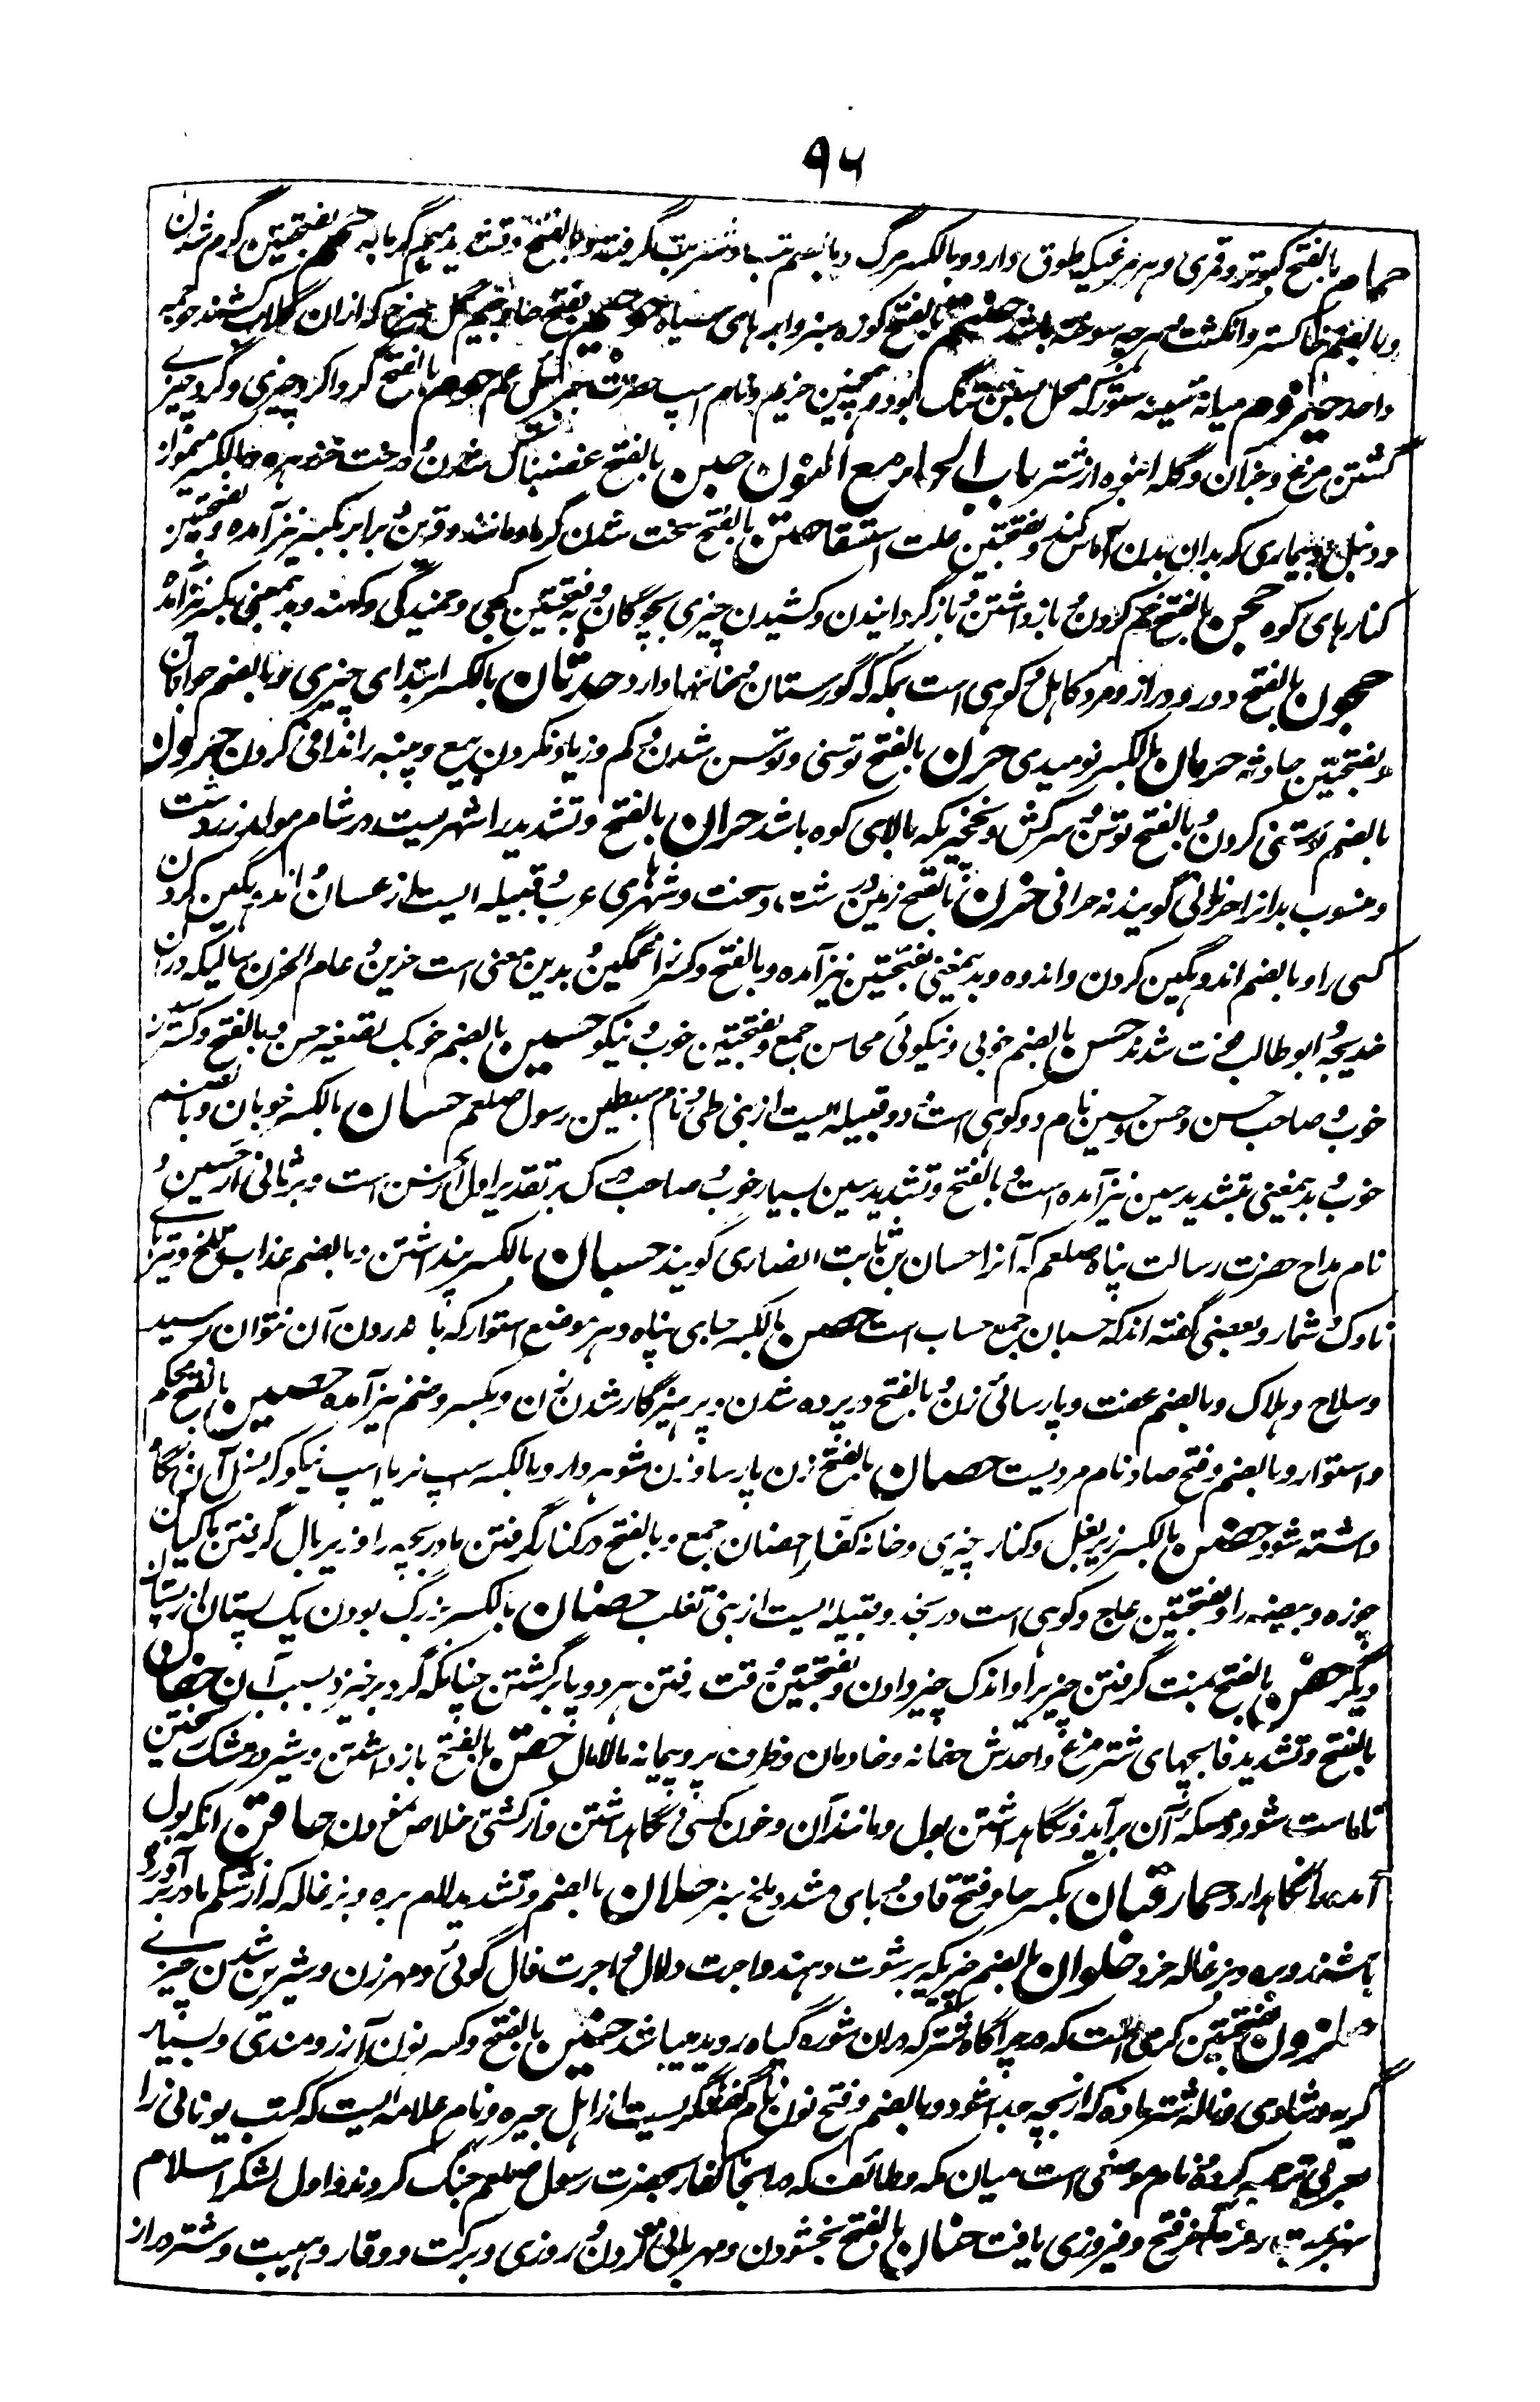 ۹۶
حمام بالفتح کبوتر و قمری و هر مرغیکه طوق دارد و بالکسر مرگ و بالضم تب و شتر تب گرفته و بالفتح و تشدید میم گرمابه حمم بفتحتین گرم شدن
وبالضم خاکستر و انگشت و هر چه سوخته باشد بالفتح کوزه سبز و ابرهای سیاه بفتح حا و جیم گل سرخ که ازان گلاب کشند حوجمه
واحد حیزوم میانهٔ سینه ستور که محل بستن تنگ بود و همچنین حزیم و نام اسپ حضرت جبرئیل عم حوم بالفتح گرد اگرد چیزی و گرد چیزے
گشتن مرغ و جزآن و گله انبوه از شتر باب الحاء مع النون حبن بالفتح غضبناک شدن و درخت خرزهره و بالکسر میمون
و دنبل و بیماری که بدان بدن آماس کند و بفتحتین علت استسقا حتن بالفتح سخت شدن گرما و مانند و قرین و برابر بکسر نیز آمده و بفتحتین
کنارهای کوه حجن بالفتح خم کردن و بازداشتن و بازگردانیدن و کشیدن چیزی بچوگان و بفتحتین کجی و خمیدگی و کهنه و بدین معنی بکسر نیز آمده
حجون بالفتح دور و دراز و مرد کاهل و کوهی است بمکه که گورستان دارد حدثان بالکسر ابتدای چیزی و بالضم جوانان
و بفتحتین حادثه حرمان بالکسر نومیدی حرن بالفتح توسنی و توسن شدن و کم و زیاد نکردن بیع و پنبه را ندافی کردن حرون
بالضم توسنی کردن و بالفتح توسن و سرکش و نخچیریکه بالای کوه باشد حران بالفتح و تشدید را شهریست در شام مولد زردشت
و منسوب بدانرا حرنانی گویند نه حرانی حزن بالفتح زمین درشت و سخت و شهرهای عرب و قبیله ایست از غسان و اندوهگین کردن
کسی را و بالضم اندوهگین کردن و اندوه و بدینمعنی بفتحتین نیز آمده و بالفتح و کسر زا غمگین و بدین معنی است حزین و عام الحزن سالیکه دران
خدیجه و ابوطالب فوت شدند حسن بالضم خوبی و نیکوئی محاسن جمع و بفتحتین خوب و نیکو حسین بالضم خوبک تصغیر حسن و بالفتح و کسر سین
خوب و صاحب حسن و حسن و حسین نام دو کوهی است و دو قبیله ایست از بنی طی و نام سبطین رسول صلعم حسان بالکسر خوبان و بالضم
خوب و بدینمعنی بتشدید سین نیز آمده است و بالفتح و تشدید سین بسیار خوب و صاحب حس بر تقدیر اول از حسن است و بر ثانی از حسیس و
نام مداح حضرت رسالت پناه صلعم که آنرا حسان بن ثابت انصاری گویند حسبان بالکسر پنداشتن و بالضم عذاب و ملخ و تیرہاے
ناوک و شمار و بعضی گفته اند که حسبان جمع حساب است حصن بالکسر جای پناه و هر موضع استوار که با ندرون آن نتوان رسید
و سلاح و هلاک و بالضم عفت و پارسائی زن و بالفتح در پرده شدن و پرهیزگار شدن زن و بکسر و ضم نیز آمده حصین بالفتح محکم
و استوار و بالضم و فتح صاد نام مردیست حصان بالفتح زن پارسا و زن شوهردار و بالکسر اسپ نر یا اسپ نیکو که نسل آن نگاه
داشته شود حضن بالکسر زیر بغل و کنار چیزی و خانه کفتار احضان جمع و بالفتح در کنار گرفتن مادر بچه را و زیر بال گرفتن ماکیان
چوزه و بیضه را و بفتحتین عاج و کوهی است در نجد و قبیله ایست از بنی تغلب حضان بالکسر بزرگ بودن یک پستان از پستان
دیگر حفن بالفتح بمشت گرفتن چیزیرا و اندک چیز دادن و بفتحتین وقت رفتن هر دو پا برگشتن چنانکه گرد برخیزد بسبب آن حفان
بالفتح و تشدید فا بچهای شترمرغ واحدش حفانه و خادمان و ظرف پر و پیمانه مالامال حقن بالفتح بازداشتن و شیر در مشک ریختن
تا ماست شود و مسکه آن برآید و نگاهداشتن بول و مانند آن و خون کسی نگاهداشتن و از کشتن خلاص نمودن حاقن آنکه بول
آمده را نگاهدارد حمار قبان بکسر حا و فتح قاف و بای مشدد ملخ سبز حلان بالضم و تشدید لام بره و بزغاله که از شکم مادر برآورده
باشند و بره و بزغاله خرد حلوان بالضم چیزیکه برشوت دهند و اجرت دلال و اجرت فال گوئی و مهر زن و شیرین شدن چیزے
حلزون بفتحتین کرمی است که در چراگاه شتر که دران شوره گیاه روید میباشد حنین بالفتح و کسر نون آرزومندی و بسیار
گریه و شادی و ناله شتر ماده که از بچه جدا شود و بالضم و فتح نون نام کفشگریست از اهل حیره و نام علامه ایست که کتب یونانی را
بعربی ترجمه کرده و نام موضعی است میان مکه و طائف که در آنجا کفار بحضرت رسول صلعم جنگ کردند و اول لشکر اسلام
هزیمت و آخر فتح و فیروزی یافت حنان بالفتح بخشودن و مهربانی کردن و روزی و برکت و وقار و هیبت و شتر دراز